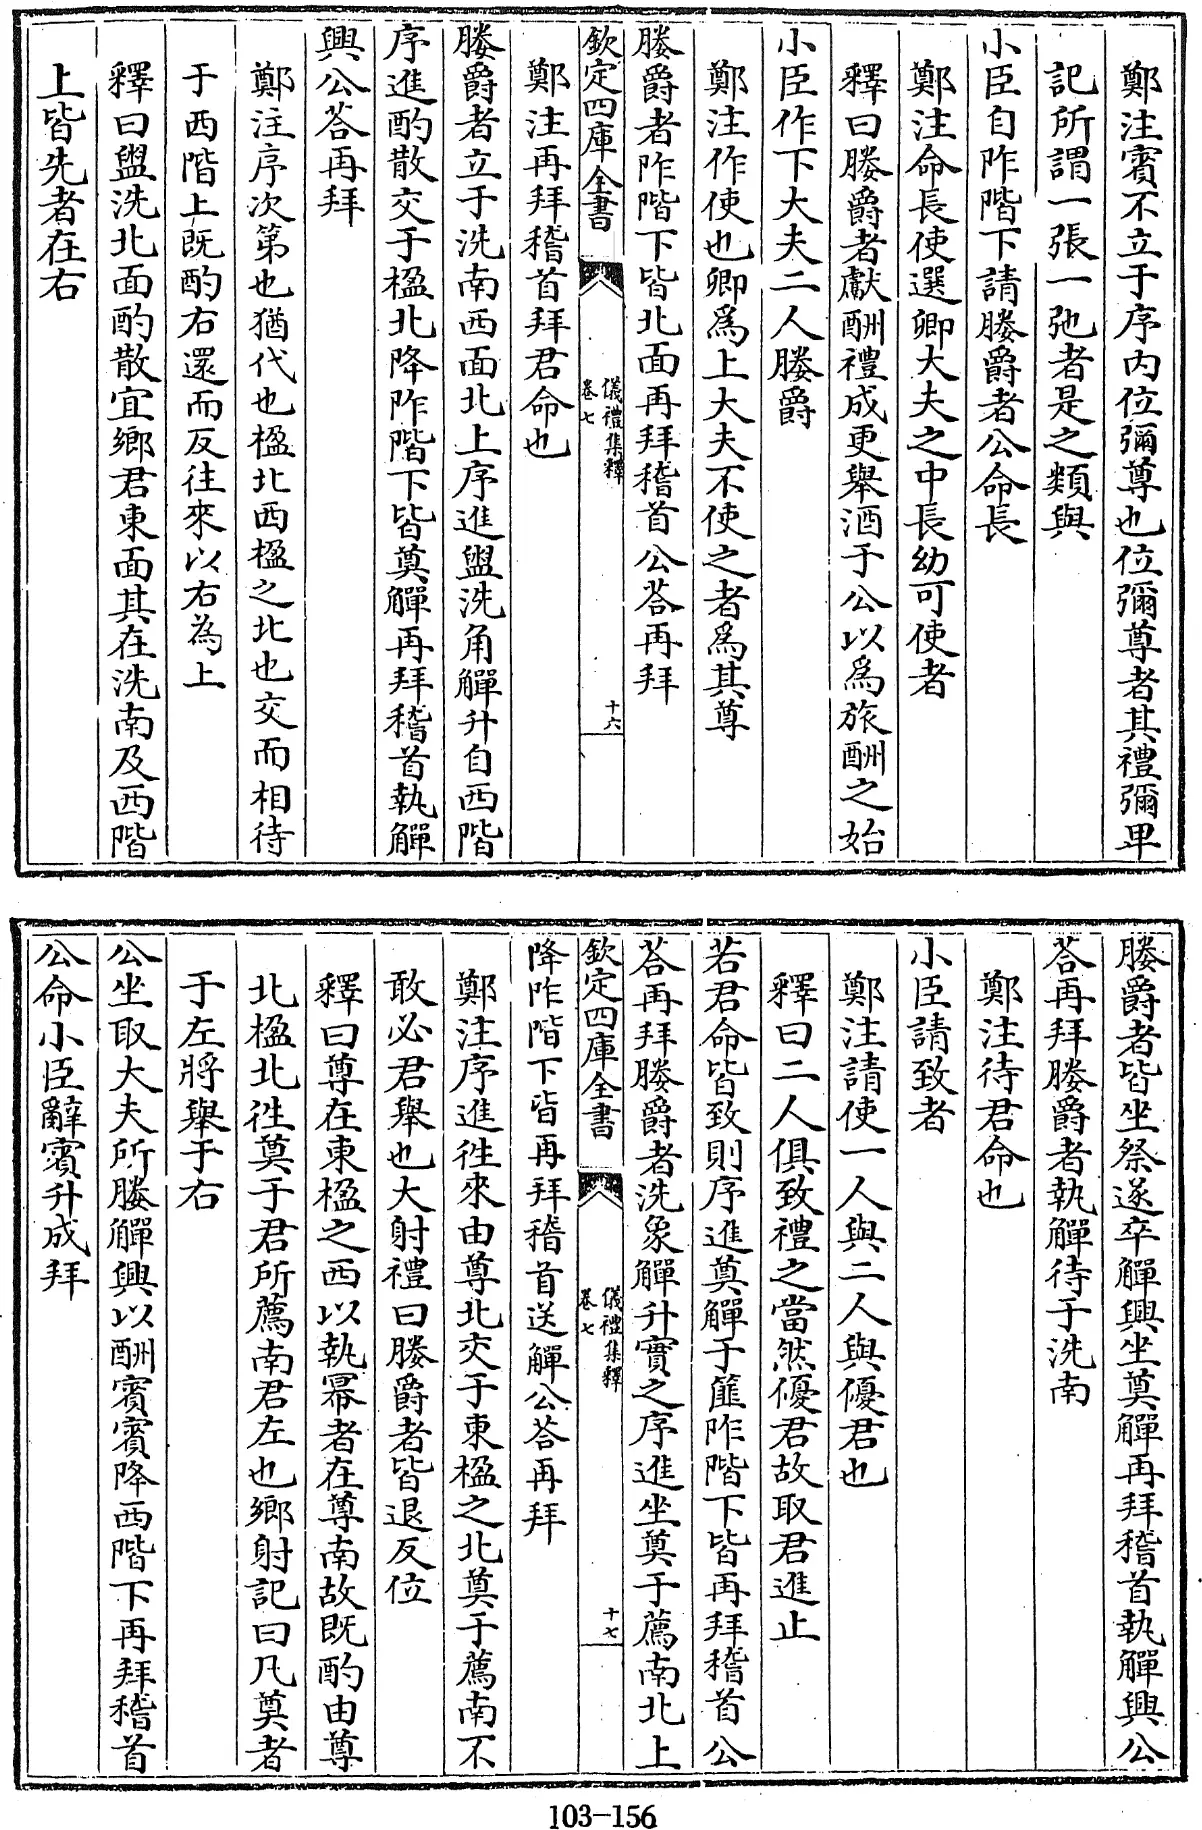 鄭注賓不立于序内位彌尊也位彌尊者其禮彌卑
記所謂一張一弛者是之類與
小臣自阼階下請媵爵者公命長
鄭注命長使選卿大夫之中長幼可使者
釋曰媵爵者獻酬禮成更舉酒于公以爲旅酬之始
小臣作下大夫二人媵爵
鄭注作使也卿爲上大夫不使之者爲其尊
媵爵者阼階下皆北面再拜稽首公荅再拜
欽定四庫全書 儀禮集釋 卷七 十六
鄭注再拜稽首拜君命也
媵爵者立于洗南西面北上序進盥洗角觶升自西階
序進酌散交于楹北降阼階下皆奠觶再拜稽首執觶
興公荅再拜
鄭注序次第也猶代也楹北西楹之北也交而相待
于西階上既酌右還而反往來以右為上
釋曰盥洗北面酌散宜鄉君東面其在洗南及西階
上皆先者在右
媵爵者皆坐祭遂卒觶興坐奠觶再拜稽首執觶興公
荅再拜媵爵者執觶待于洗南
鄭注待君命也
小臣請致者
鄭注請使一人與二人與優君也
釋曰二人俱致禮之當然優君故取君進止
若君命皆致則序進奠觶于篚阼階下皆再拜稽首公
荅再拜媵爵者洗象觶升實之序進坐奠于薦南北上
欽定四庫全書 儀禮集釋 卷七 十七
降阼階下皆再拜稽首送觶公荅再拜
鄭注序進往來由尊北交于東楹之北奠于薦南不
敢必君舉也大射禮曰媵爵者皆退反位
釋曰尊在東楹之西以執幂者在尊南故既酌由尊
北楹北徃奠于君所薦南君左也鄉射記曰凡奠者
于左將舉于右
公坐取大夫所媵觶興以酬賓賓降西階下再拜稽首
公命小臣辭賓升成拜
103-156